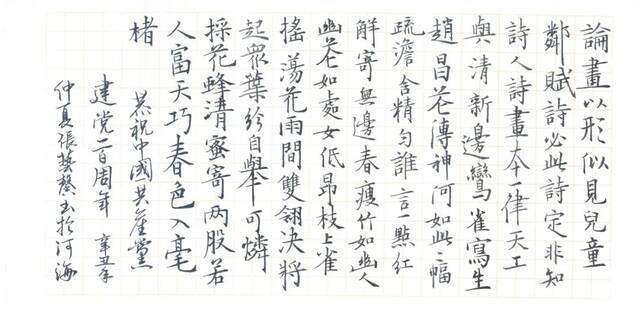 論畫以形似見兒童
鄰賦詩必此詩定非知
詩人詩畫本一律天工
與清新邊鸞雀寫生
趙昌花傳神何如此二幅
疏澹含精匀誰言一點紅
解寄無邊春瘦竹如幽人
幽花如處女低昂枝上雀
搖蕩花雨間雙翎決將
起眾葉紛自舉可憐
採花蜂清蜜寄两股若
人富天巧春色入毫
楮 恭祝中國共產黨
建党一百周年 辛丑年
仲夏張藝馨书於河海